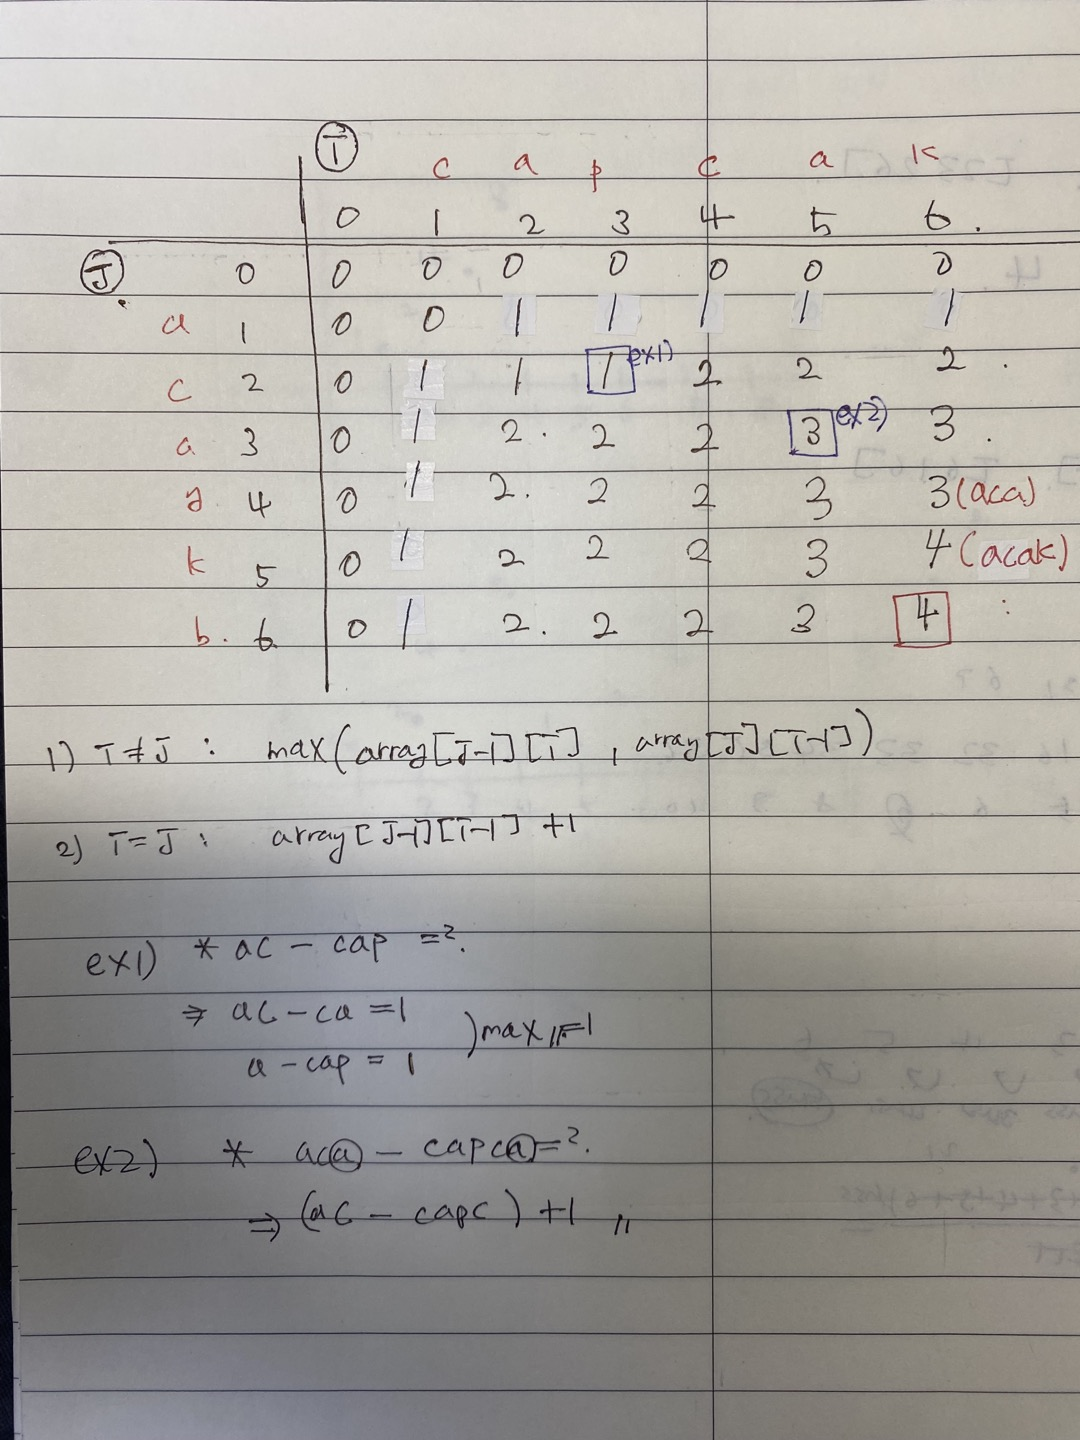 T
c a p c a k
0 1 2 3 4 5 6.
J 0 0 0 0 0 0 0 0
a 1 0 0 1 1 1 1 1
c 2 0 1 1 1 ex1) 2 2 2
a 3 0 1 2 2 2 3 ex2) 3
4 0 1 2 2 2 3 3 (aca)
k 5 0 1 2 2 2 3 4 (acak)
b. 6 0 1 2 2 2 3 4
1) T≠J : max(array[J-1][T] , array[J][T-1])
2) T=J : array[J-1][T-1] +1
ex1) * ac - cap =?.
⇒ ac - ca = 1
a - cap = 1 ) max = 1
ex2) * aca - capca =?.
⇒ (ac - capc) +1 〃